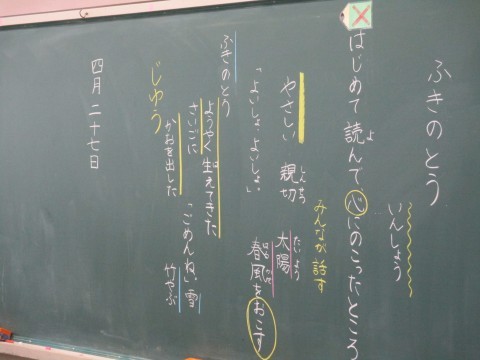 ふきのとう
いんしょう
はじめて読んで、心にのこったところ
よ
みんなが話す
やさしい 親切
しんせつ
太陽
たいよう
「よいしょ、よいしょ。」
春風をおこす
はるかぜ
ふきのとう
ようやく生えてきた
は
さいごに
「ごめんね。」雪
かおを出した
竹やぶ
じゆう
四月二十七日